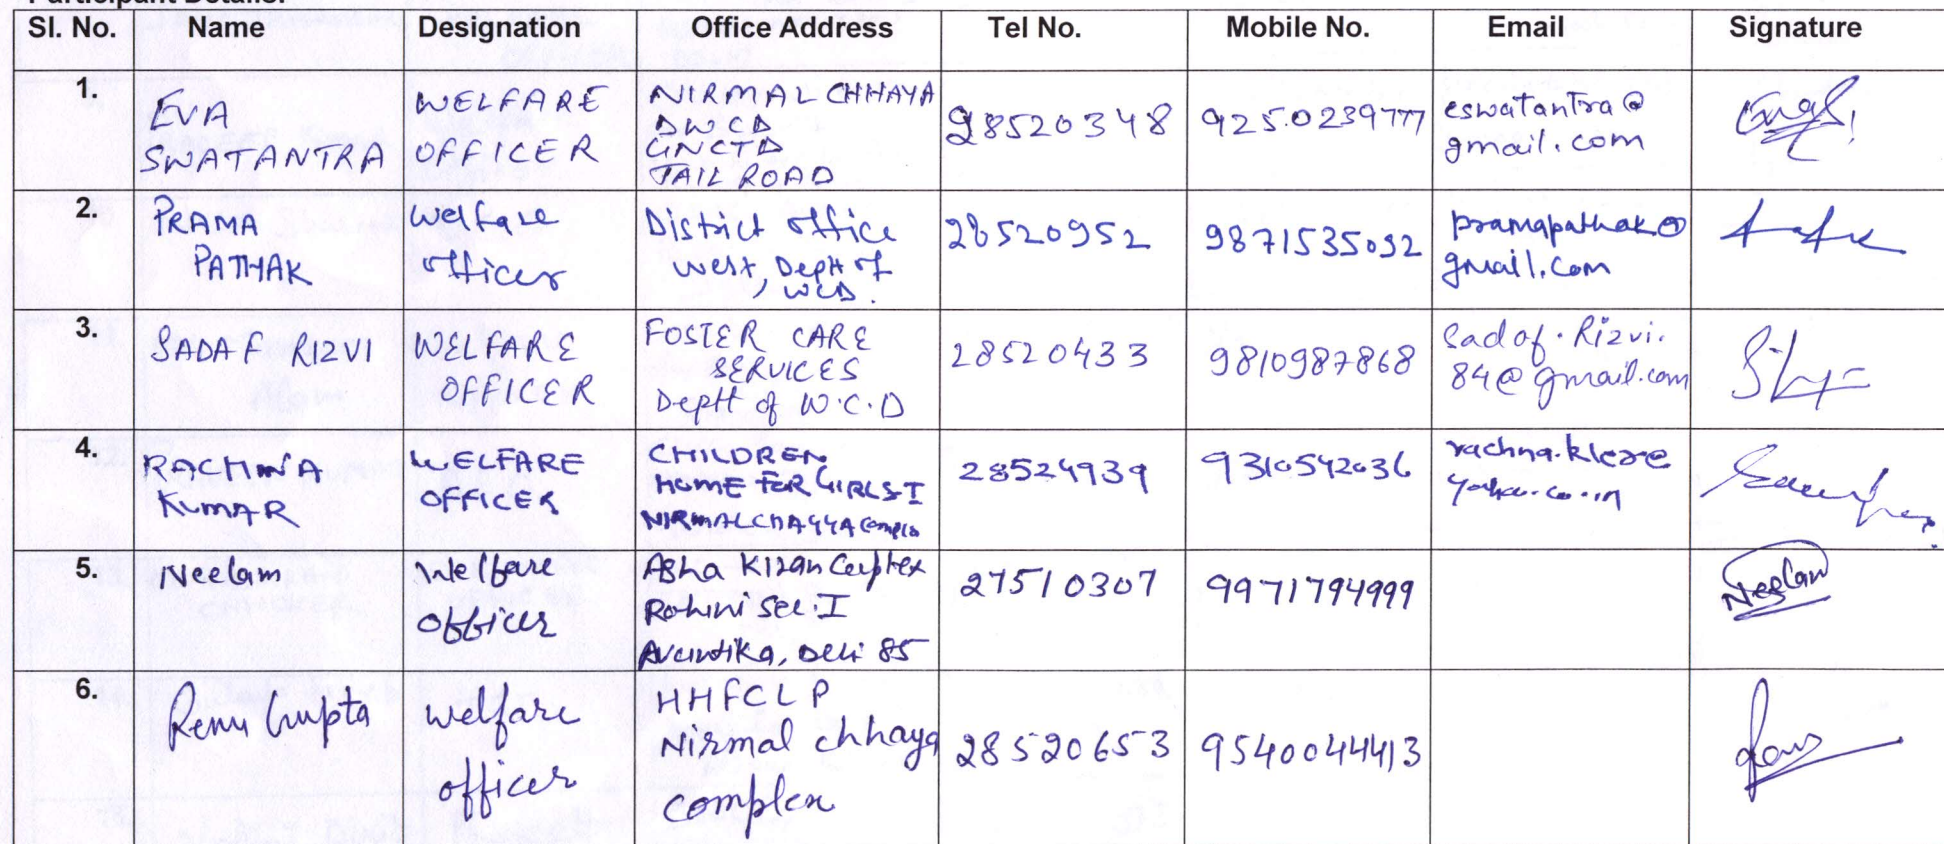 Participant Details:
Sl. No. Name Designation Office Address Tel No. Mobile No. Email Signature
1. EVA SWATANTRA WELFARE OFFICER NIRMAL CHHAYA DWCD GNCTD JAIL ROAD 28520348 9250239777 eswatantra@gmail.com
2. PRAMA PATHAK Welfare officer District office West, Deptt of WCD. 28520952 9871535032 pramapathak@gmail.com
3. SADAF RIZVI WELFARE OFFICER FOSTER CARE SERVICES Deptt of W.C.D 28520433 9810987868 Sadaf.Rizvi.84@gmail.com
4. RACHNA KUMAR WELFARE OFFICER CHILDREN HOME FOR GIRLS I NIRMAL CHAYYA Complex 28524939 9310542036 yahoo.co.in
5. Neelam Welfare officer Asha Kiran Complex Rohini Sec. I Avantika, Delhi 85 27510307 9971794999 Neelam
6. Renu Gupta Welfare officer HHFCLP Nirmal chhaya complex 28520653 9540044413